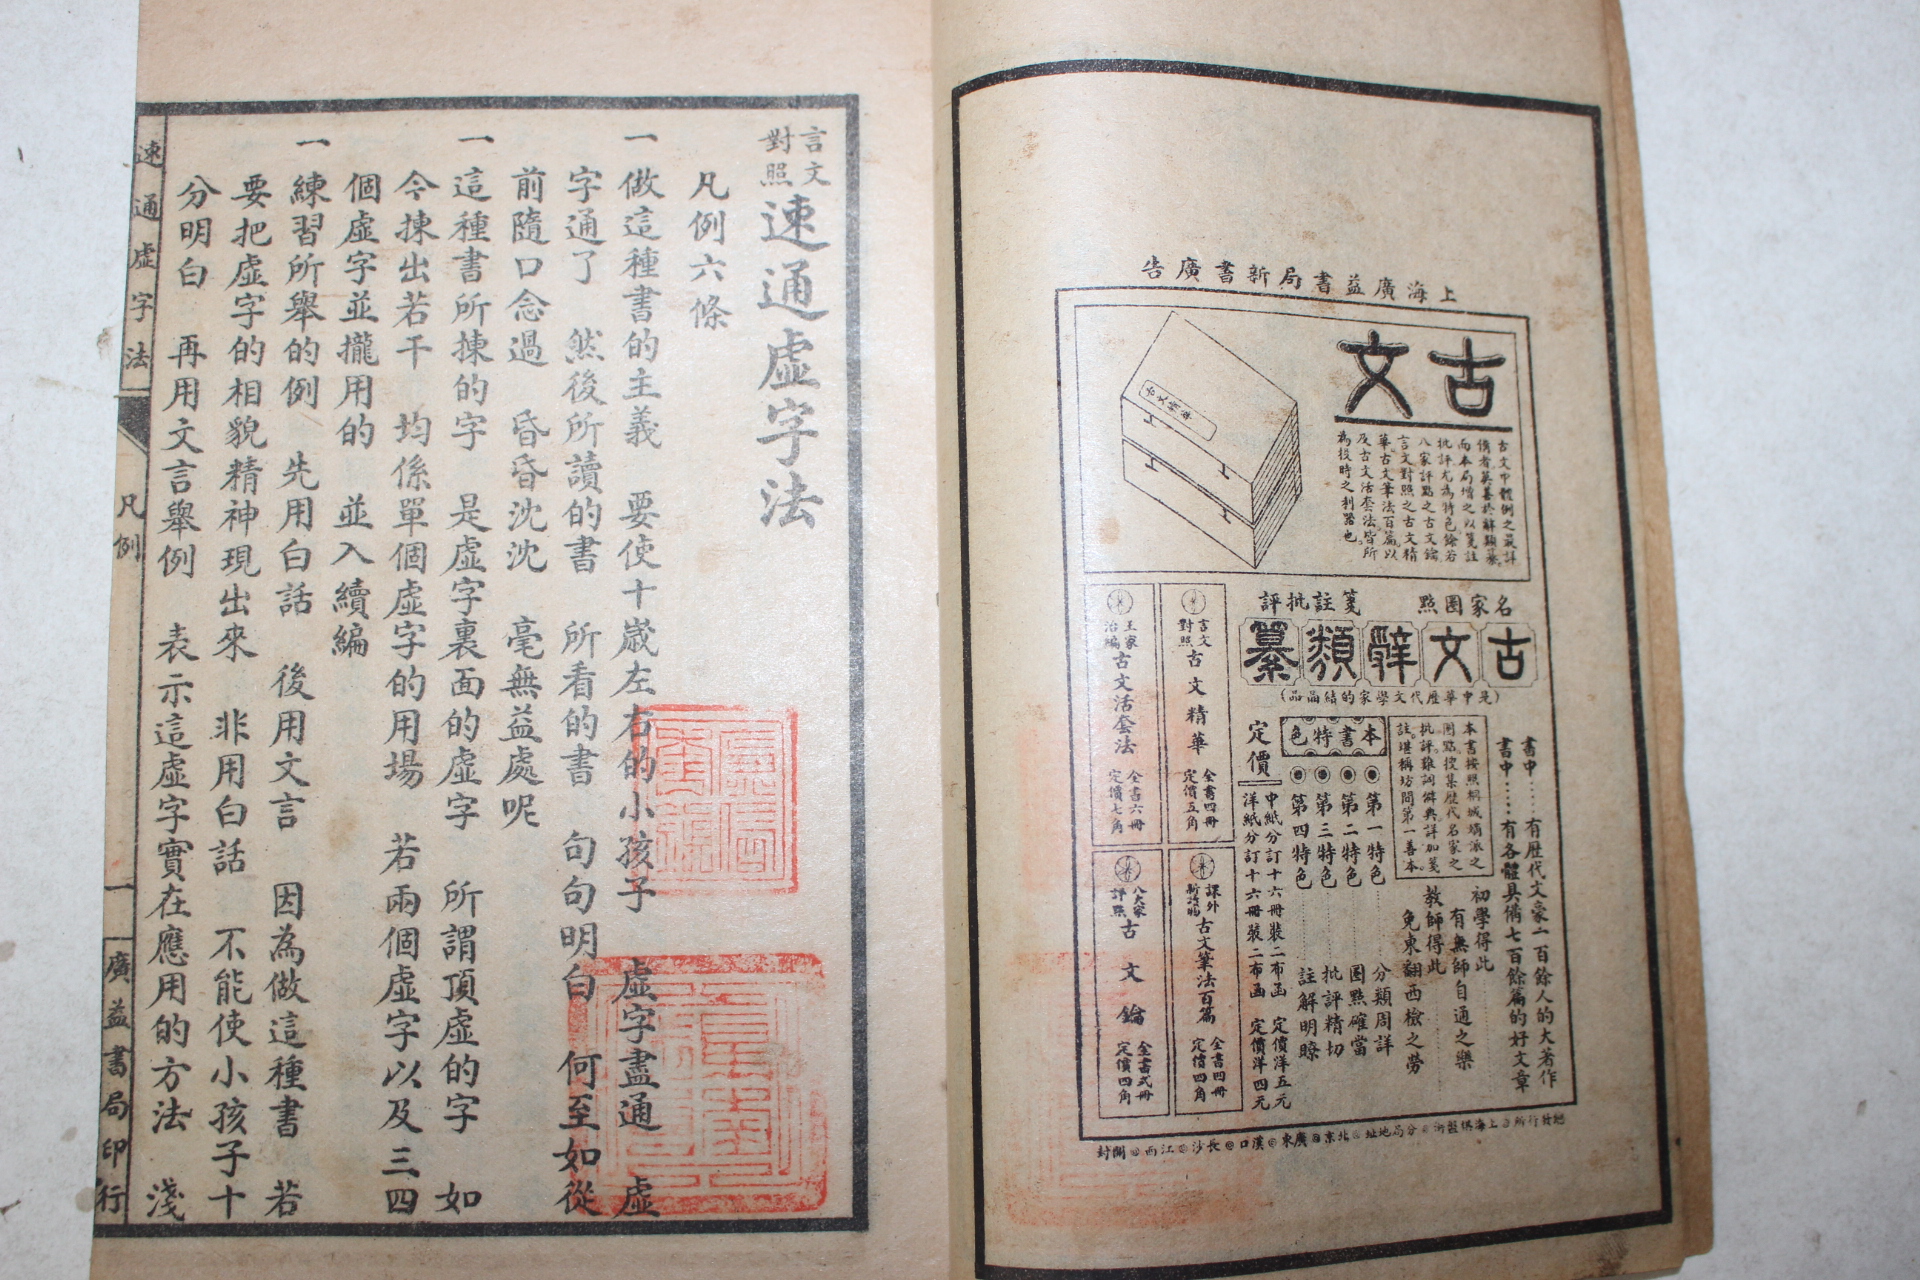 上海廣益書局新書廣告
古文
古文中體例之最詳
備者莫善於辭類纂
而本局增之以箋註
批評尤為特色餘若
八家評點之古文鑰
言文對照之古文精
華古文筆法百篇以
及古文活套法皆所
為後時之利器也
古文精華
名家圈點
箋註批評
古文辭類纂
(是中華歷代文學家的結晶品)
書中……有歷代文豪一百餘人的大著作
書中……有各體具備七百餘篇的好文章
本書按照桐城嫡派之
圈點搜集歷代名家之
批評難詞僻典詳加箋
註堪稱坊間第一善本
初學得此……有無師自通之樂
教師得此……免東翻西檢之勞
本書特色
第一特色……分類周詳
第二特色……圈點確當
第三特色……批評精切
第四特色……註解明瞭
定價
中紙分訂十六冊裝二布函 定價洋五元
洋紙分訂十六冊裝二布函 定價洋四元
言文對照 古文精華 全書四冊 定價五角
王家治編 古文活套法 全書六冊 定價七角
課外 古文筆法百篇 全書四冊 定價四角
八大家評點 古文鑰 全書弍冊 定價四角
分局地址 北京 廣東 漢口 長沙 江西 開封
言文對照速通虛字法
凡例六條
一做這種書的主義 要使十歲左右的小孩子 虛字盡通 虛
字通了 然後所讀的書 所看的書 句句明白 何至如從
前隨口念過 昏昏沈沈 毫無益處呢
一這種書所揀的字 是虛字裏面的虛字 所謂頂虛的字 如
今揀出若干 均係單個虛字的用場 若兩個虛字以及三四
個虛字並攏用的 並入續編
一練習所舉的例 先用白話 後用文言 因為做這種書 若
要把虛字的相貌精神現出來 非用白話 不能使小孩子十
分明白 再用文言舉例 表示這虛字實在應用的方法 淺
速通虛字法 凡例 一 廣益書局印行